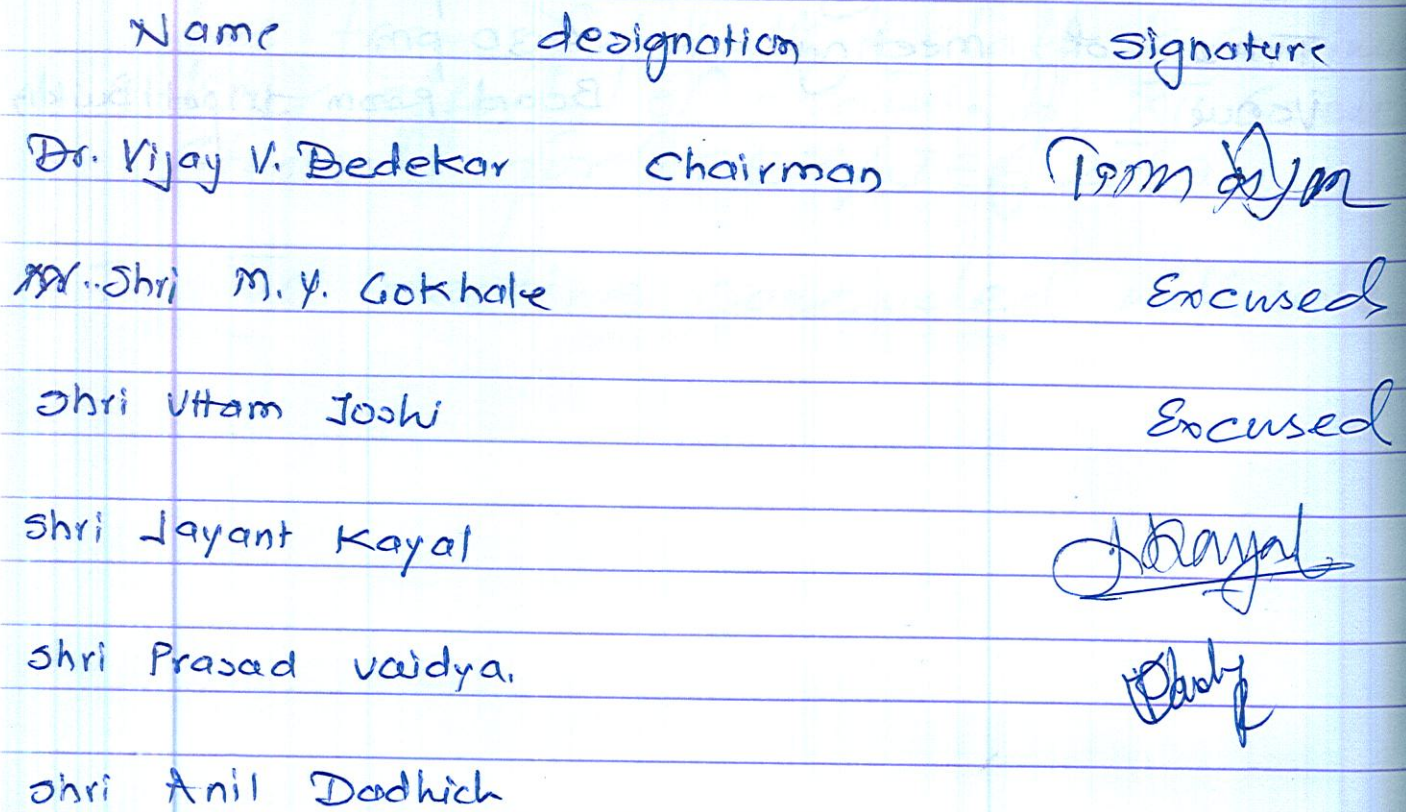 Name designation Signature
Dr. Vijay V. Bedekar Chairman
Shri M. Y. Gokhale Excused
Shri Uttam Joshi Excused
Shri Jayant Kayal JKayal
Shri Prasad Vaidya.
Shri Anil Dadhich